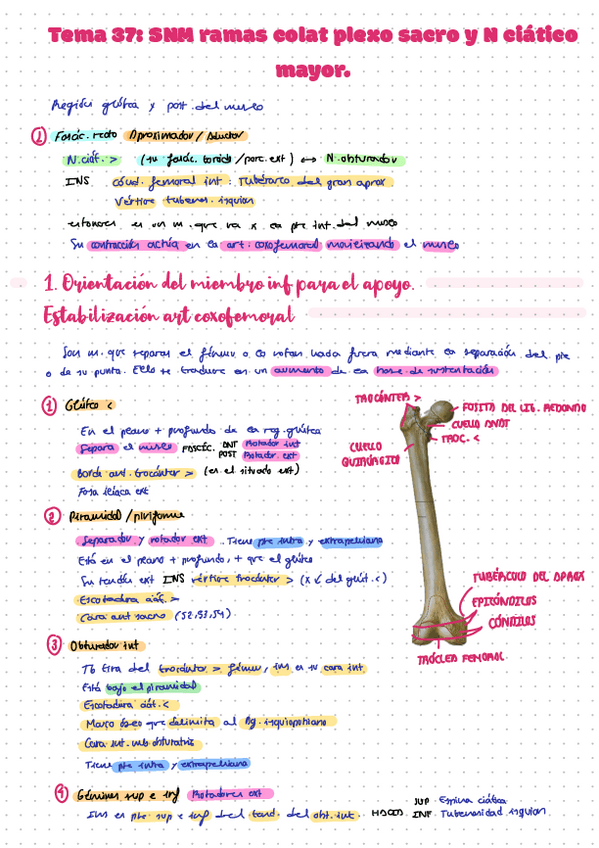 Tema 37: SNM ramas colat plexo sacro y N ciático
mayor.
Región glútea y post. del muslo
1 Fascíc. recto Aproximador / Aductor
N. ciát. > (su fascíc. / porc. ext) ↔ N. obturador
INS Cónd. femoral int : Tubérculo del gran aprox
Vértice tuberos. isquion
entonces es un m. que va x la pte int. del muslo
Su contracción actúa en la art. coxofemoral movilizando el muslo
1. Orientación del miembro inf para el apoyo.
Estabilización art coxofemoral
Son m. que separan el fémur o lo rotan hacia fuera mediante la separación del pie
o de su punta. Ello se traduce en un aumento de la base de sustentación
1 Glúteo <
En el plano + profundo de la reg. glútea
Separa el muslo FASCÍC. ANT Rotador int
POST Rotador ext
Borde ant. trocánter > (es el situado ext)
Fosa ilíaca ext
2 Piramidal / piriforme
Separador y rotador ext . Tiene pte intra y extrapelviana
Está en el plano + profundo, + que el glúteo
Su tendón ext INS vértice trocánter > (x ↙ del glút. <)
Escotadura ciát. >
Cara ant sacro (S2, S3, S4)
3 Obturador int
Tb tira del trocánter > fémur, ins en su cara int
Está bajo el piramidal
Escotadura ciát. <
Marco óseo que delimita al Ag. isquiopubiano
Cara int. mb obturatriz
Tiene pte intra y extrapelviana
4 Géminos sup e inf Rotadores ext
Ins en pte sup e inf del tend. del obt. int. HACIA SUP Espina ciática
INF Tuberosidad isquion
TROCÁNTER >
FOSITA DEL LIG. REDONDO
CUELLO ANAT
TROC. <
CUELLO
QUIRÚRGICO
TUBÉRCULO DEL APROX
EPICÓNDILOS
CÓNDILOS
TRÓCLEA FEMORAL